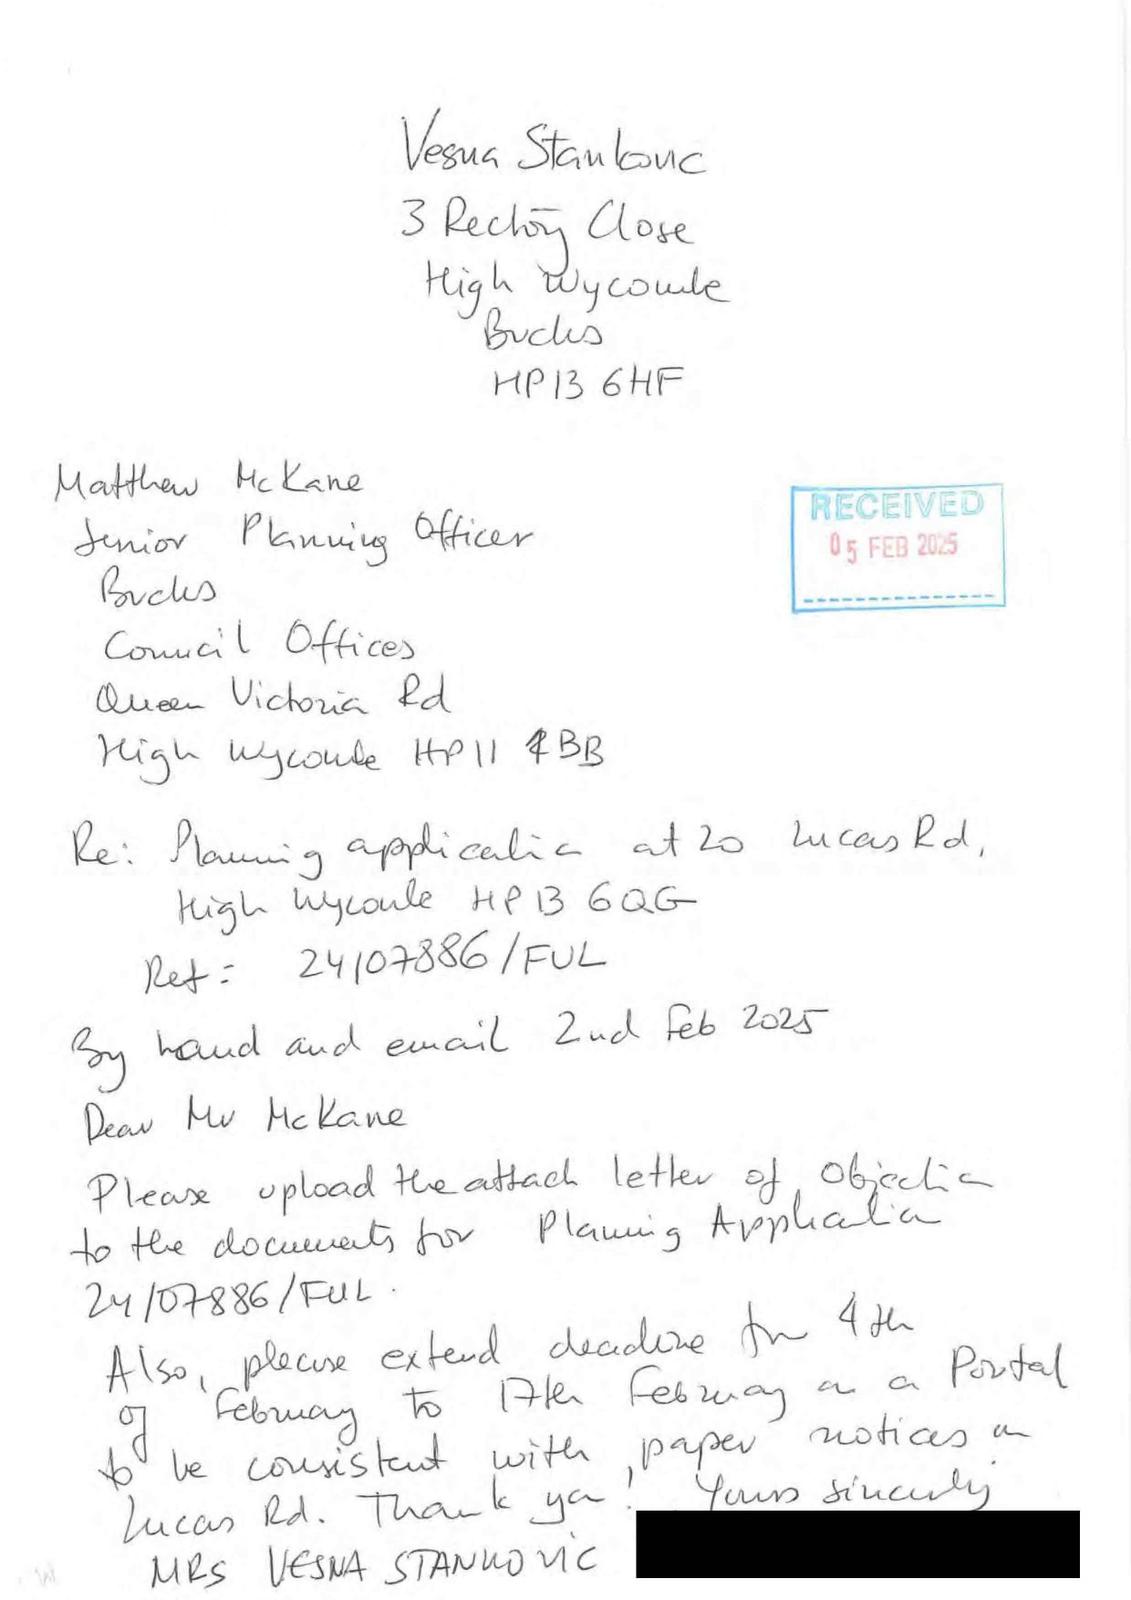 Vesna Stankovic
3 Rectory Close
High Wycombe
Bucks
HP13 6HF
Matthew McKane
Senior Planning Officer
Bucks
RECEIVED
05 FEB 2025
Council Offices
Queen Victoria Rd
High Wycombe HP11 1BB
Re: Planning application at 20 Lucas Rd,
High Wycombe HP13 6QG
Ref: 24/07886/FUL
By hand and email 2nd Feb 2025
Dear Mr McKane
Please upload the attach letter of Objection
to the documents for Planning Application
24/07886/FUL.
Also, please extend deadline from 4th
of February to 17th February on a Portal
to be consistent with paper notices on
Lucas Rd. Thank you! Yours sincerely
MRS VESNA STANKOVIC